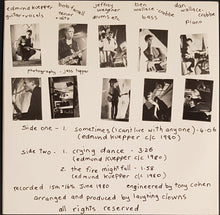 edmund kuepper bob farrell jeffrey wegener ben wallace-crabbe dan wallace-crabbe
guitar·vocals tenor sax drums bass piano
photography - jess tapper
side one - 1. sometimes (i cant live with anyone) - 4·04
(edmund kuepper c/c 1980)
side two - 1. crying dance - 3:26
(edmund kuepper c/c 1980)
2. the fire nightfall - 1·58
(edmund kuepper c/c 1980)
recorded 15th 16th june 1980 engineered by tony cohen
arranged and produced by laughing clowns
all rights reserved